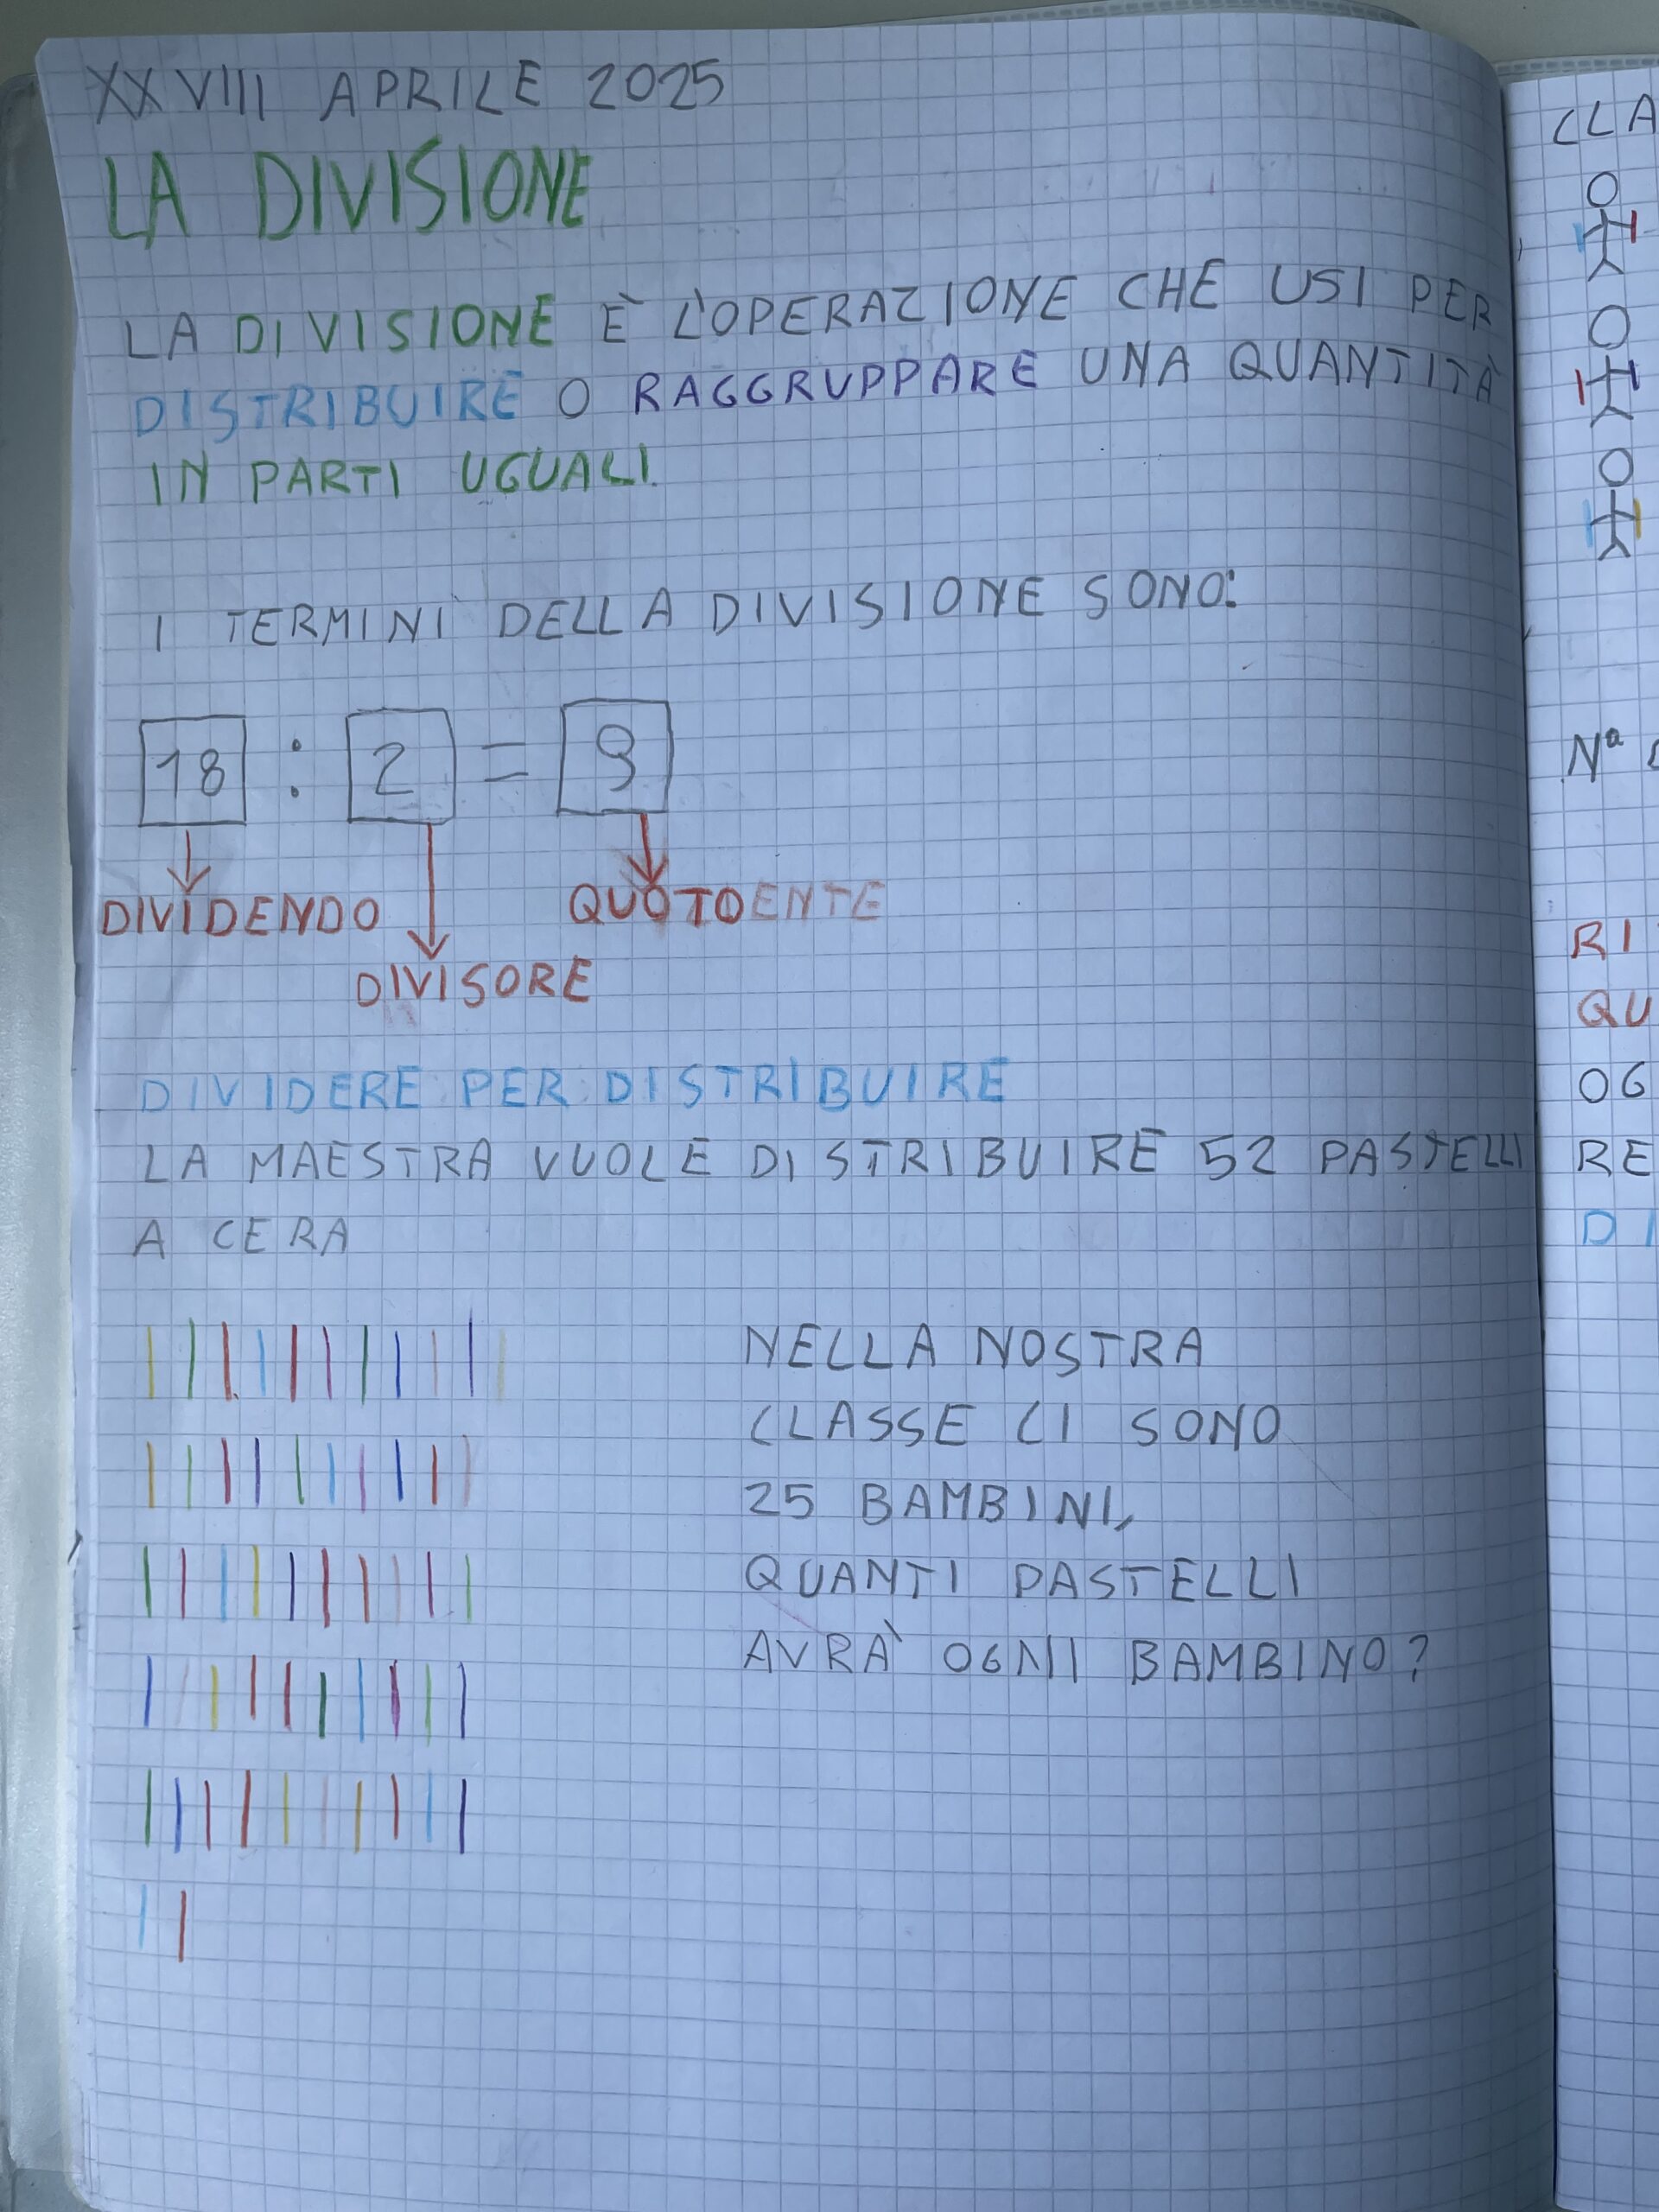 XXVIII APRILE 2025
LA DIVISIONE
LA DIVISIONE È L'OPERAZIONE CHE USI PER
DISTRIBUIRE O RAGGRUPPARE UNA QUANTITÀ
IN PARTI UGUALI.
I TERMINI DELLA DIVISIONE SONO:
18 : 2 = 9
DIVIDENDO
DIVISORE
QUOTOENTE
DIVIDERE PER DISTRIBUIRE
LA MAESTRA VUOLE DISTRIBUIRE 52 PASTELLI
A CERA
NELLA NOSTRA
CLASSE CI SONO
25 BAMBINI,
QUANTI PASTELLI
AVRÀ OGNI BAMBINO?
CLA
Nª
RI
QU
OG
RE
DI